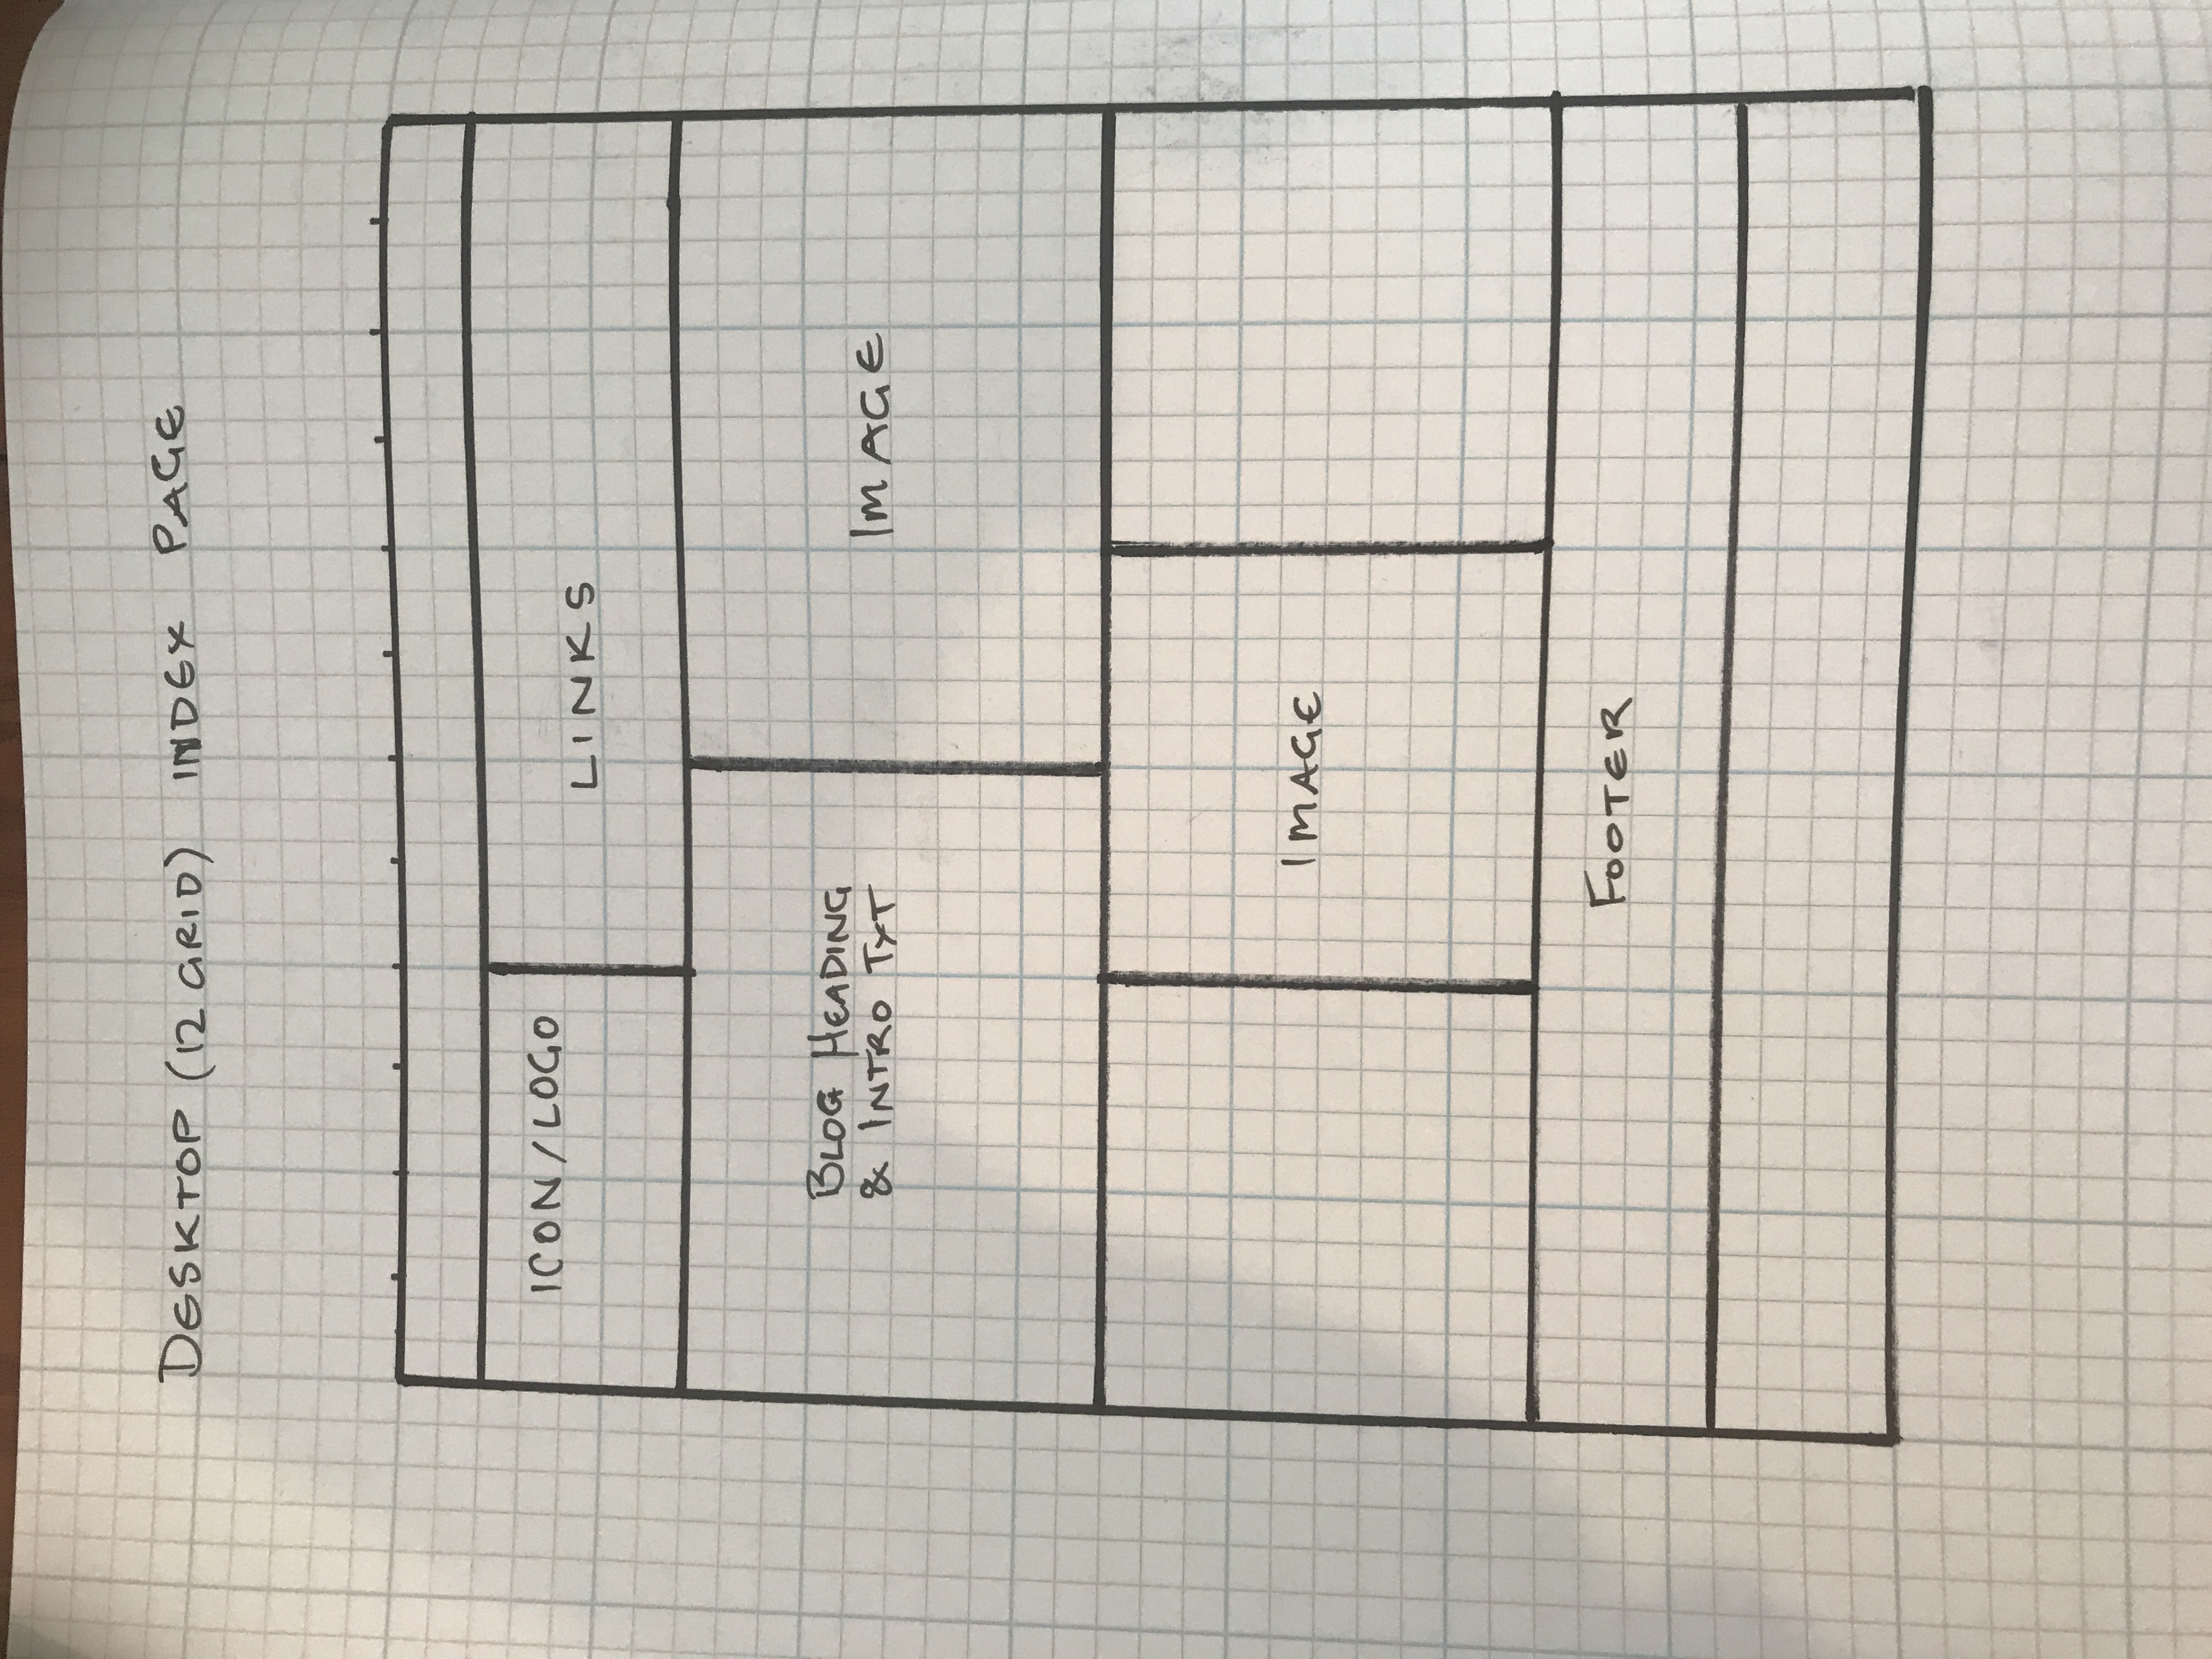 DESKTOP (12 GRID) INDEX PAGE
ICON/LOGO
LINKS
BLOG HEADING
& INTRO TXT
IMAGE
IMAGE
FOOTER